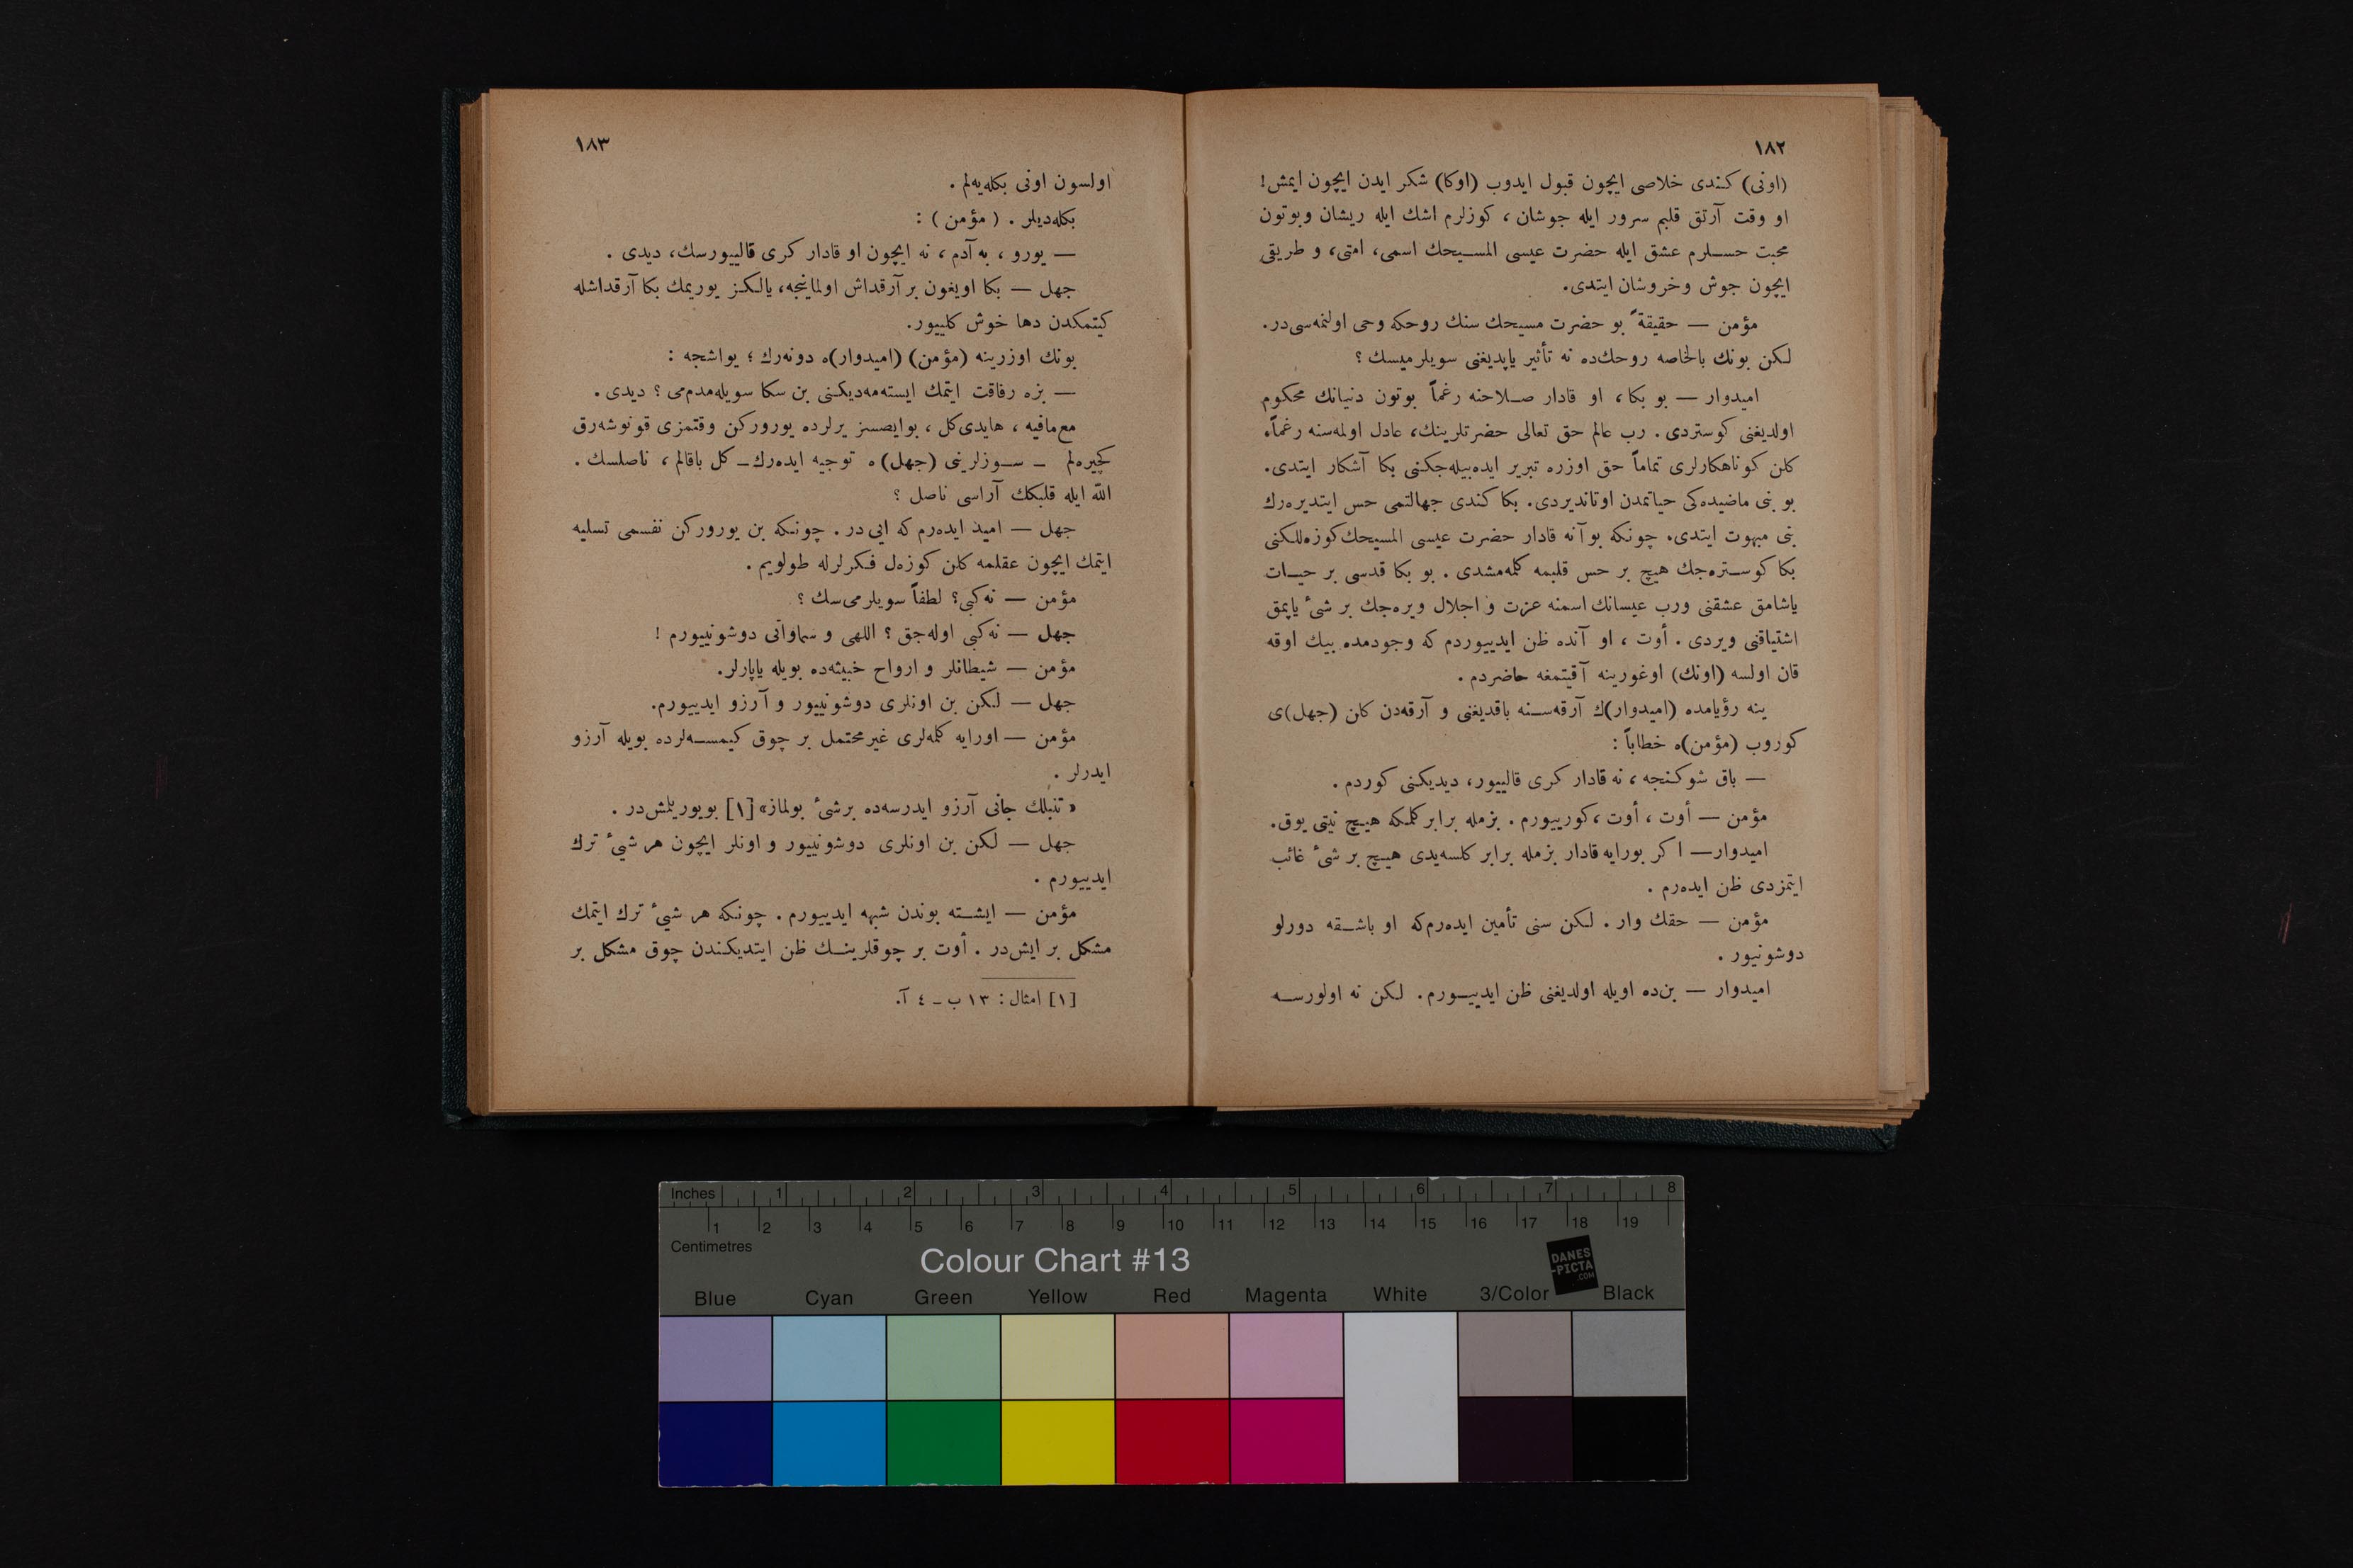 ١٨٢
(اونی) كندی خلاصی ایچون قبول ایدوب (اوكا) شكر ایدن ایچون ایمش!
او وقت آرتق قلبم سرور ایله جوشان ، كوزلرم اشك ایله ریشان وبوتون
محبت حسلرم عشق ایله حضرت عیسی المسیحك اسمی، امتی، و طریقی
ایچون جوش وخروشان ایتدی.
مؤمن — حقیقةً بو حضرت مسیحك سنك روحكه وحی اولنمه‌سی‌در.
لكن بونك بالخاصه روحك‌ده نه تأثیر یاپدیغنی سویلرمیسك ؟
امیدوار — بو بكا ، او قادار صلاحنه رغماً بوتون دنیانك محكوم
اولدیغنی كوستردی . رب عالم حق تعالی حضرتلرینك، عادل اولمه‌سنه رغماً،
كلن كوناهكارلری تماماً حق اوزره تبریر ایده‌بیله‌جكنی بكا آشكار ایتدی.
بو بنی ماضیده‌كی حیاتمدن اوتاندیردی. بكا كندی جهالتمی حس ایتدیره‌رك
بنی مبهوت ایتدی. چونكه بوآنه قادار حضرت عیسی المسیحك كوزه‌للكنی
بكا كوستره‌جك هیچ بر حس قلبمه كلمه‌مشدی . بو بكا قدسی بر حیات
یاشامق عشقنی ورب عیسانك اسمنه عزت و اجلال ویره‌جك بر شئ یاپمق
اشتیاقنی ویردی . أوت ، او آنده ظن ایدییوردم كه وجودمده بیك اوقه
قان اولسه (اونك) اوغورینه آقیتمغه حاضردم .
ینه رؤیامده (امیدوار)ك آرقه‌سنه باقدیغنی و آرقه‌دن كلن (جهل)ی
كوروب (مؤمن)ه خطاباً :
— باق شوكنجه ، نه قادار كری قالییور، دیدیكنی كوردم .
مؤمن — أوت ، أوت ،كورییورم . بزمله برابركلمكه هیچ نیتی یوق.
امیدوار— اكر بورایه قادار بزمله برابر كلسه‌یدی هیچ بر شئ غائب
ایتمزدی ظن ایده‌رم .
مؤمن — حقك وار . لكن سنی تأمین ایده‌رم‌كه او باشقه دورلو
دوشونیور .
امیدوار — بن‌ده اویله اولدیغنی ظن ایدییورم. لكن نه اولورسه
١٨٣
اولسون اونی بكله‌یه‌لم .
بكله‌دیلر . ( مؤمن ) :
— یورو ، به آدم ، نه ایچون او قادار كری قالییورسك، دیدی .
جهل — بكا اویغون بر آرقداش اولماینجه، یالكز یوریمك بكا آرقداشله
كیتمكدن دها خوش كلییور.
بونك اوزرینه (مؤمن) (امیدوار)ه دونه‌رك ؛ یواشجه :
— بزه رفاقت ایتمك ایسته‌مه‌دیكنی بن سكا سویله‌مدم‌می ؟ دیدی .
مع‌مافیه ، هایدی‌كل ، بوایصسز یرلرده یوروركن وقتمزی قونوشه‌رق
كچیره‌لم – سوزلرینی (جهل)ه توجیه ایده‌رك– كل باقالم ، ناصلسك .
الله ایله قلبكك آراسی ناصل ؟
جهل — امید ایده‌رم كه ایی‌در . چونكه بن یوروركن نفسمی تسلیه
ایتمك ایچون عقلمه كلن كوزه‌ل فكرلرله طولویم .
مؤمن — نه‌كبی؟ لطفاً سویلرمی‌سك ؟
جهل — نه‌كبی اوله‌جق ؟ اللهی و سماواتی دوشونییورم !
مؤمن — شیطانلر و ارواح خبیثه‌ده بویله یاپارلر.
جهل — لكن بن اونلری دوشونییور و آرزو ایدییورم.
مؤمن — اورایه كلمه‌لری غیرمحتمل بر چوق كیمسه‌لرده بویله آرزو
ایدرلر .
« تنبلك جانی آرزو ایدرسه‌ده برشئ بولماز» [١] بویوریلمش‌در .
جهل — لكن بن اونلری دوشونییور و اونلر ایچون هر شیئ ترك
ایدییورم .
مؤمن — ایشته بوندن شبهه ایدییورم . چونكه هر شیئ ترك ایتمك
مشكل بر ایش‌در . أوت بر چوقلرینك ظن ایتدیكندن چوق مشكل بر
[١] امثال : ١٣ ب – ٤ آ.
Inches 1 2 3 4 5 6 7 8
1 2 3 4 5 6 7 8 9 10 11 12 13 14 15 16 17 18 19
Centimetres
Colour Chart #13
DANES
-PICTA
.COM
Blue Cyan Green Yellow Red Magenta White 3/Color Black